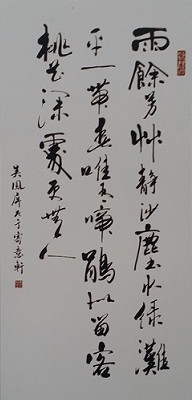 雨餘芳艸靜沙塵水綠灘
平一帶春唯有啼鵑似留客
桃花深處更無人
吳鳳屏书于意軒